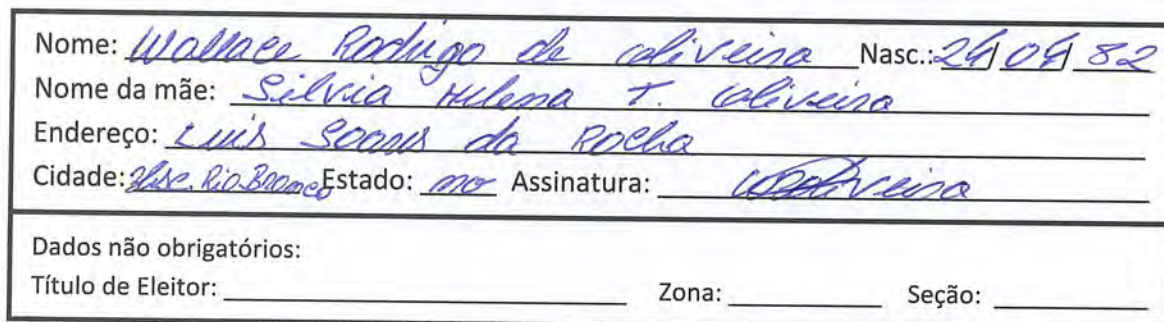 Nome: Wallace Rodrigo de oliveira Nasc.: 24/04/82
Nome da mãe: Silvia Helena T. oliveira
Endereço: Luis Soares da Rocha
Cidade: Visc. Rio Branco Estado: MG Assinatura: WOliveira
Dados não obrigatórios:
Título de Eleitor: Zona: Seção: